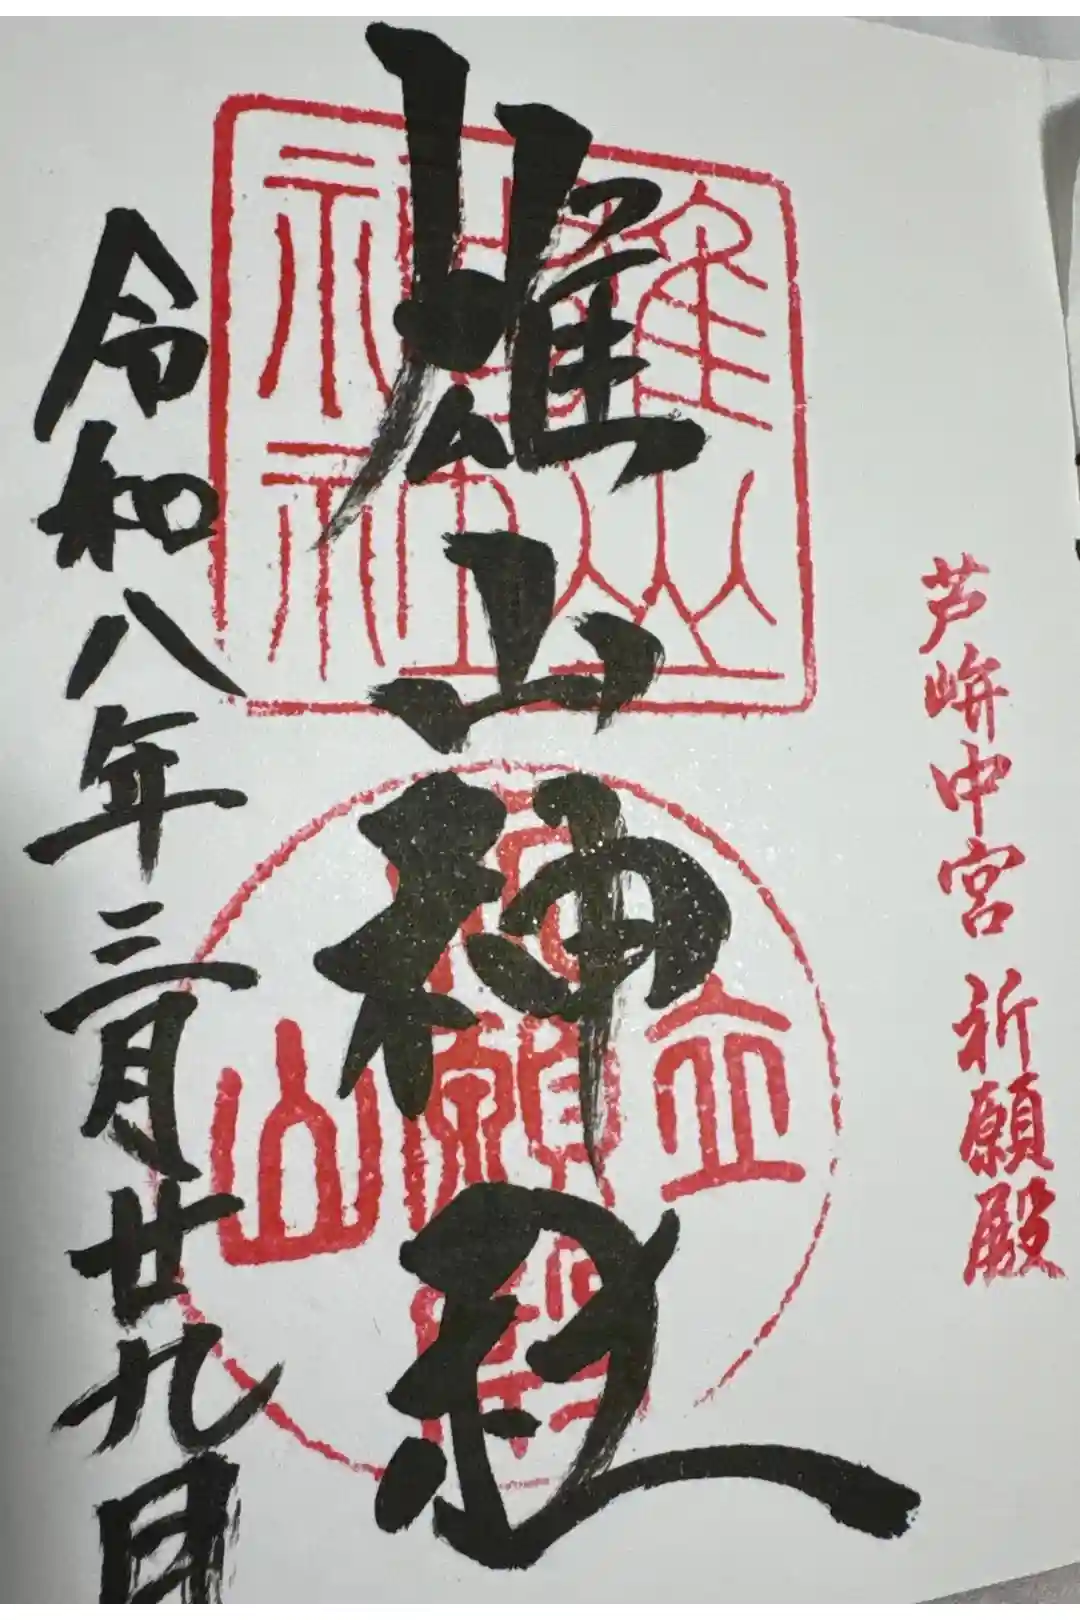 芦峅中宮 祈願殿
雄山神社
令和八年三月廿九日
雄山
神社
立山
願殿